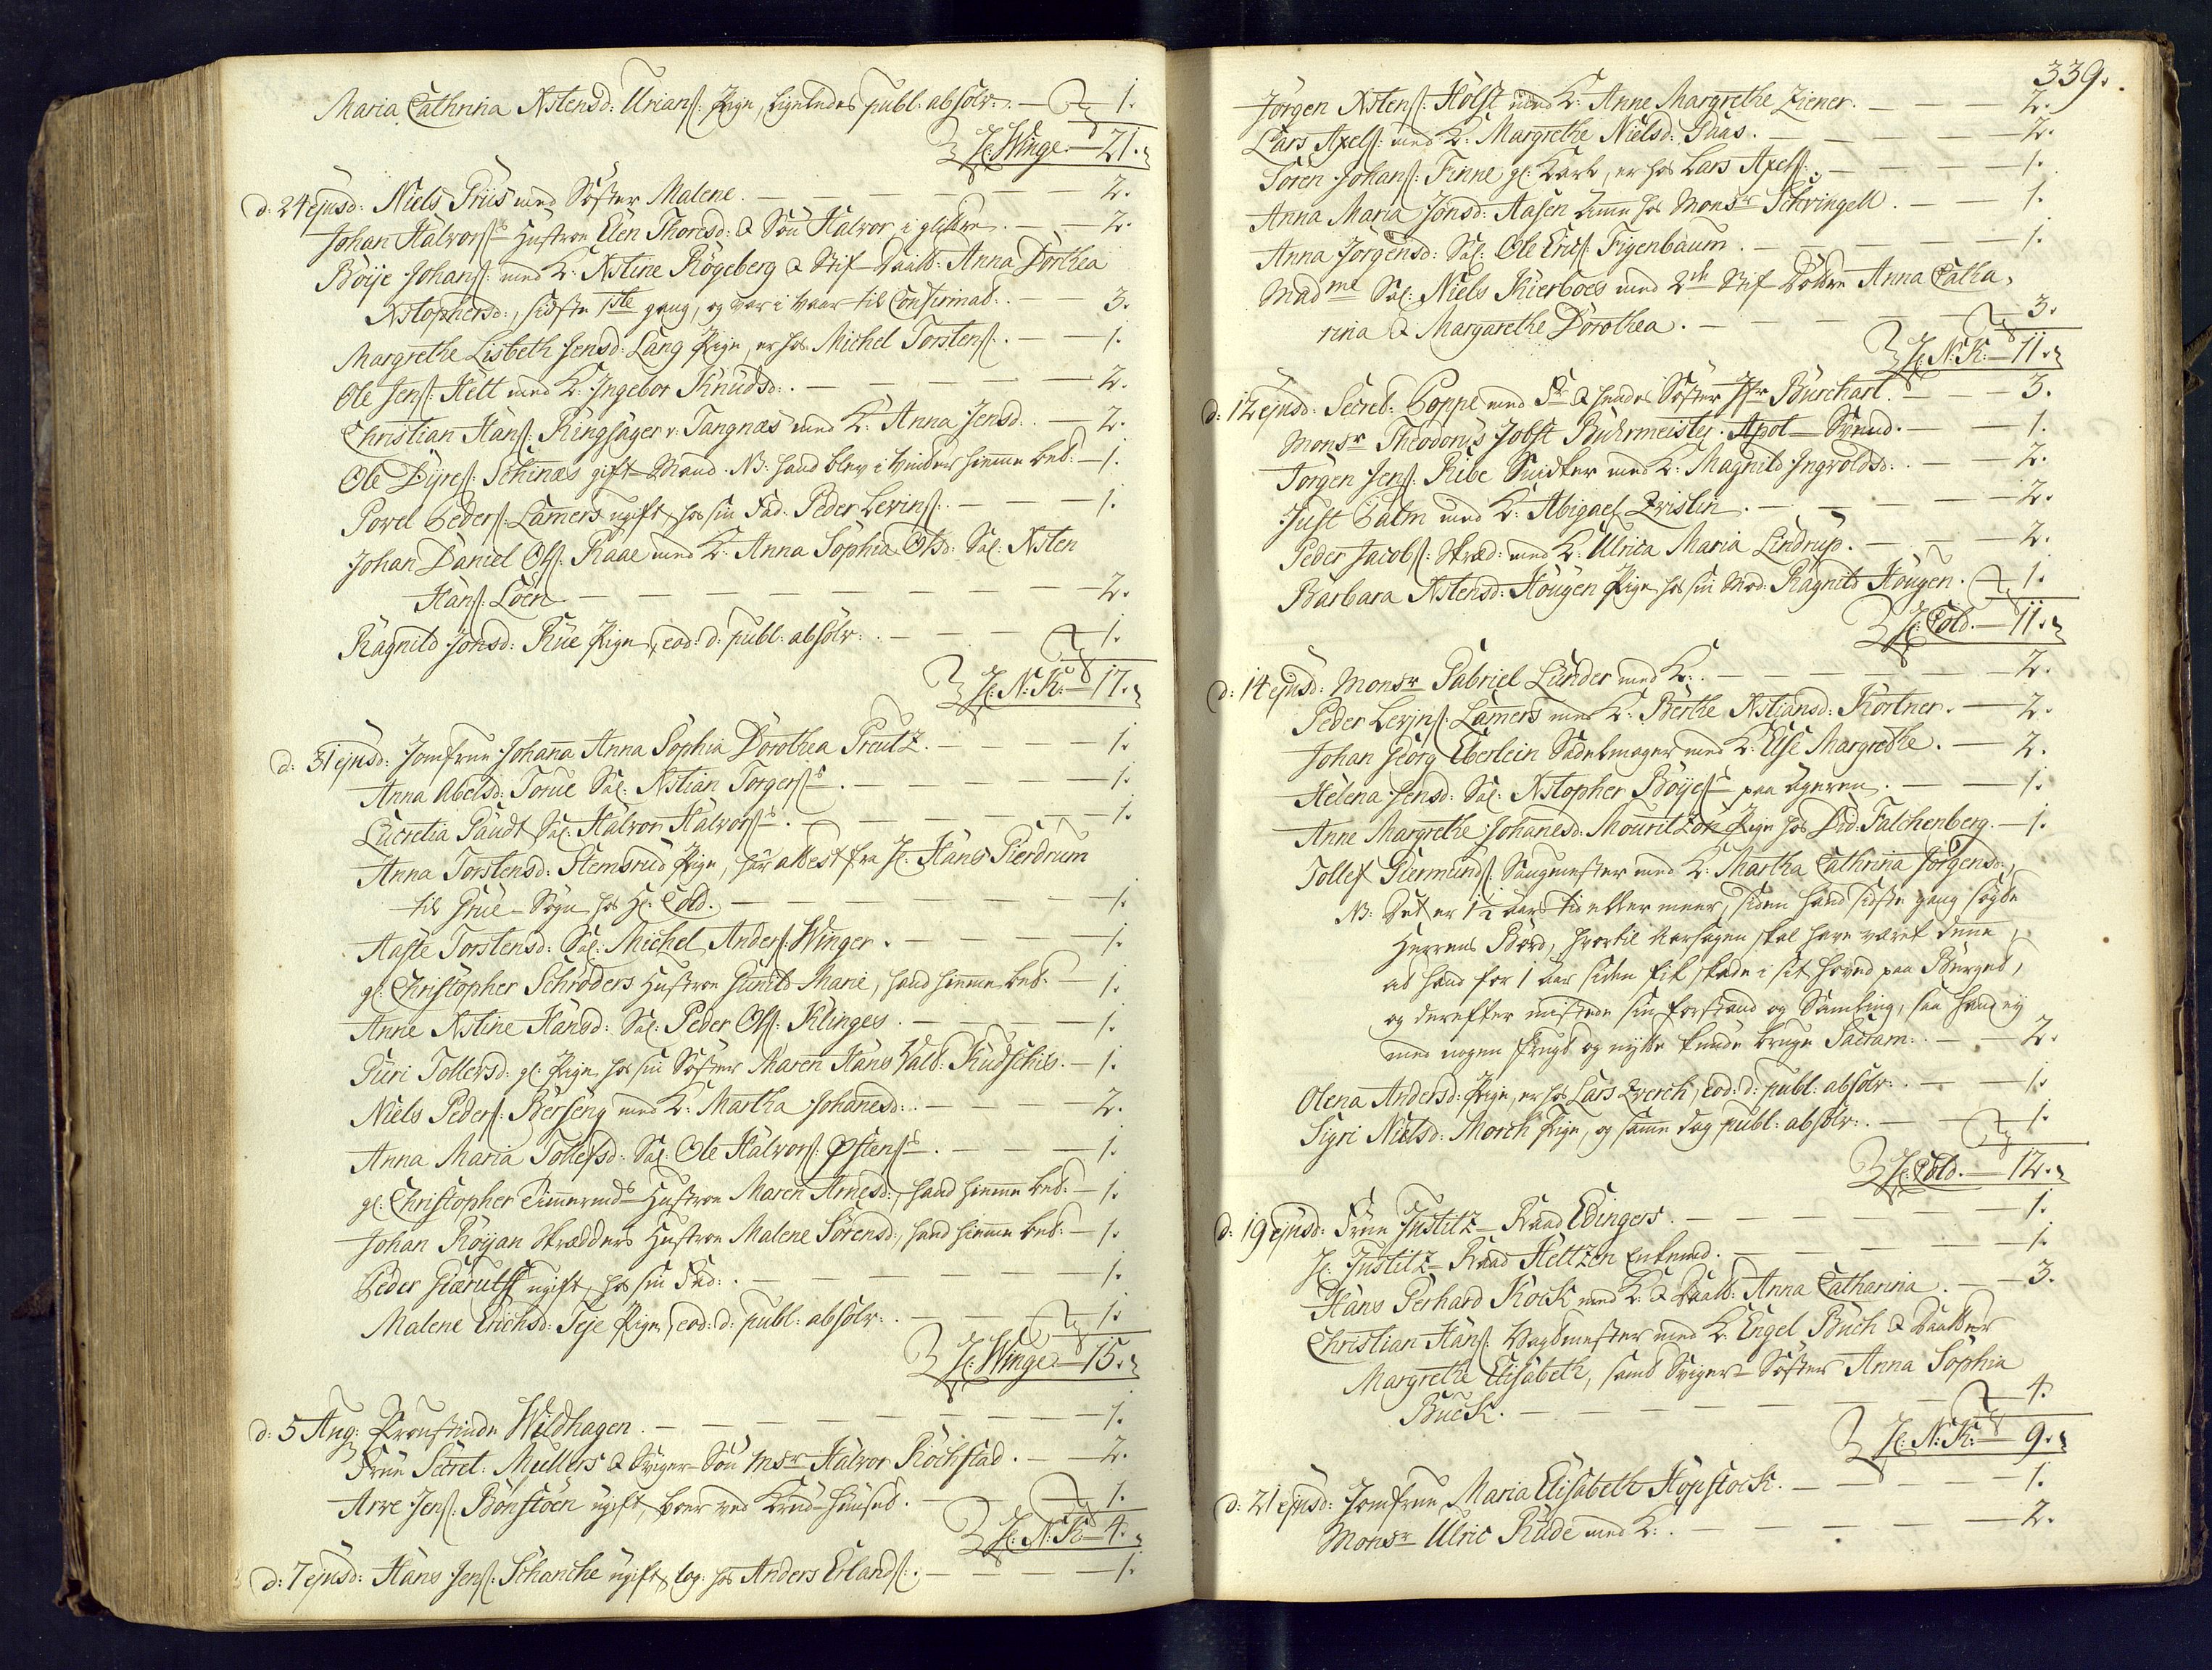 Maria Cathrina Xstensd: Urians: Pige, ligeledes publ: absolv: — 1.
H: Winge — 21.
d: 24 ejusd: Niels Friis med Söster Malene. — 2.
Johan Halvors:s Hustroe Elen Thoresd: & Sön Halvor i gl — 2.
Böije Johans: med K: Xstine Rögeberg & Stif-Daatt: Anna Dorthea
Xstophersd:, sidste 1ste gang, og var i Vaar til Confirmat: — 3.
Margrethe Lisbeth Jensd: Lang Pige, er hos Michel Torstens: — 1.
Ole Jens: Helt med K: Ingebor Knudsd: — 2.
Christian Hans: Ringjäger v: Tangnæs med K: Anna Jensd: — 2.
Ole Dyres: Schinæs gift Mand. NB: hand blev i hiemme bet: — 1.
Povel Peders: Lamers ugift, hos sin Fad: Peder Levins: — 1.
Johan Daniel Ols: Raae med K: Anna Sophia Olsd: Sal: Xsten
Hans: Löen — 2.
Ragnild Jonsd: Rue Pige, eod: d: publ: absolv: — 1.
H: N: K: — 17.
d: 31 ejusd: Jomfrue Johanna Anna Sophia Dorothea Preutz. — 1.
Anna Abelsd: Torue Sal: Xstian Torgers:s — 1.
Lucretia Paudt Sal: Halvor Halvors:s — 1.
Anna Torstensd: Stemsrud Pige, har attest fra H: Hans Gierdrum
til Grue-Sogn hos H: Cold. — 1.
Aaste Torstensd: Sal: Michel Anders: Winger. — 1.
gl: Christopher Schröders Hustroe Gunild Marie, hand hiemme bet: — 1.
Anne Xstine Hansd: Sal: Peder Ols: Klinges. — 1.
Guri Tollevsd: gl: Pige, hos sin Söster Maren Hans Hald: Kudschis. — 1.
Niels Peders: Berseng med K: Martha Johannesd: — 2.
Anna Maria Tollefsd: Sal: Ole Halvors: Östens:s — 1.
gl: Christopher Timmermds Hustroe Maren Arnesd:, hand hiemme bet: — 1.
Johan Röyan Skrædders Hustroe Malene Sörensd:, hand hiemme bet: — 1.
Peder Gieruls: ugift, hos sin Fad: — 1.
Malene Erichsd: Teje Pige, eod: d: publ: absolv: — 1.
H: Winge — 15.
d: 5 Aug: Provstinde Wildhagen. — 1.
Frue Secret: Mullers & Sviger-Sön Msr Halvor Rochstad. — 2.
Arve Jens: Bönstöen ugift, boer ved Krud-Huuset. — 1.
H: N: K: — 4.
d: 7 ejusd: Hans Jens: Schanche ugift, log: hos Anders Erlands: — 1.
339.
Jörgen Xstens: Holst med K: Anne Margrethe Ziener. — 2.
Lars Axels: med K: Margrethe Nielsd: Paas. — 2.
Sören Johans: Finne gl: Karl, er hos Lars Axels: — 1.
Anna Maria Jonsd: Aasen Amme hos Monsr Schringell. — 1.
Anna Jörgensd: Sal: Ole Erics: Figenbaum. — 1.
Madme Sal: Niels Kierboes med 2de Stif-Döttre Anna Catha,
rina & Margarethe Dorothea. — 3.
H: N: K: — 11.
d: 12 ejusd: Secret: Poppe med Fr: & hendes Söster Jfr Burchart. — 3.
Monsr Theodorus Jobst Buhrmeister Apot-Svend. — 1.
Jörgen Jens: Ribe Snidker med K: Magnild Ingvoldsd: — 2.
Just Palm med K: Abigael Zvislin. — 2.
Peder Jacobs: Skræd: med K: Ulrica Maria Lindrup. — 2.
Barbara Xstensd: Hougen Pige hos sin Mod: Ragnild Hougen. — 1.
H: Cold. — 11.
d: 14 ejusd: Monsr Gabriel Lunder med K: — 2.
Peder Levins: Lamers med K: Berthe Xstiansd: Körtner. — 2.
Johan Georg Eberlein Sadelmager med K: Else Margrethe. — 2.
Helena Jensd: Sal: Xstopher Böijes:s paa Ageren. — 1.
Anne Margrethe Johannesd: Mouritzon Pige hos Did: Falchenberg. — 1.
Tollef Giermunds: Saugmester med K: Martha Cathrina Jörgensd:,
NB: Det er 1½ aars tid eller meer, siden hand sidste gang sögte
Herrens Bord, hvortil Aarsagen skal have været denne,
at hand for 1 Aar siden fik skade i sit hoved paa Bierget,
og derefter mistede sin forstand og Samling, saa hand ey
med nogen frugt og nytte kunde bruge Sacram: — 2.
Olena Andersd: Pige, er hos Lars Zverch, eod: d: publ: absolv: — 1.
Sigri Nielsd: Morch Pige, og samme dag publ: absolv: — 1.
H: Cold. — 12.
d: 19 ejusd: Frue Justitz-Raad Edingers. — 1.
H: Justitz-Raad Heltzen Enkemd. — 1.
Hans Gerhard Kock med K: & Daatt: Anna Catharina. — 3.
Christian Hans: Vagtmester med K: Engel Buch & Daatter
Margrethe Elisabeth, samt Sviger-Söster Anna Sophia
Buck. — 4.
H: N: K: — 9.
d: 21 ejusd: Jomfrue Maria Elisabeth Hopstock. — 1.
Monsr Ulric Rude med K: — 2.